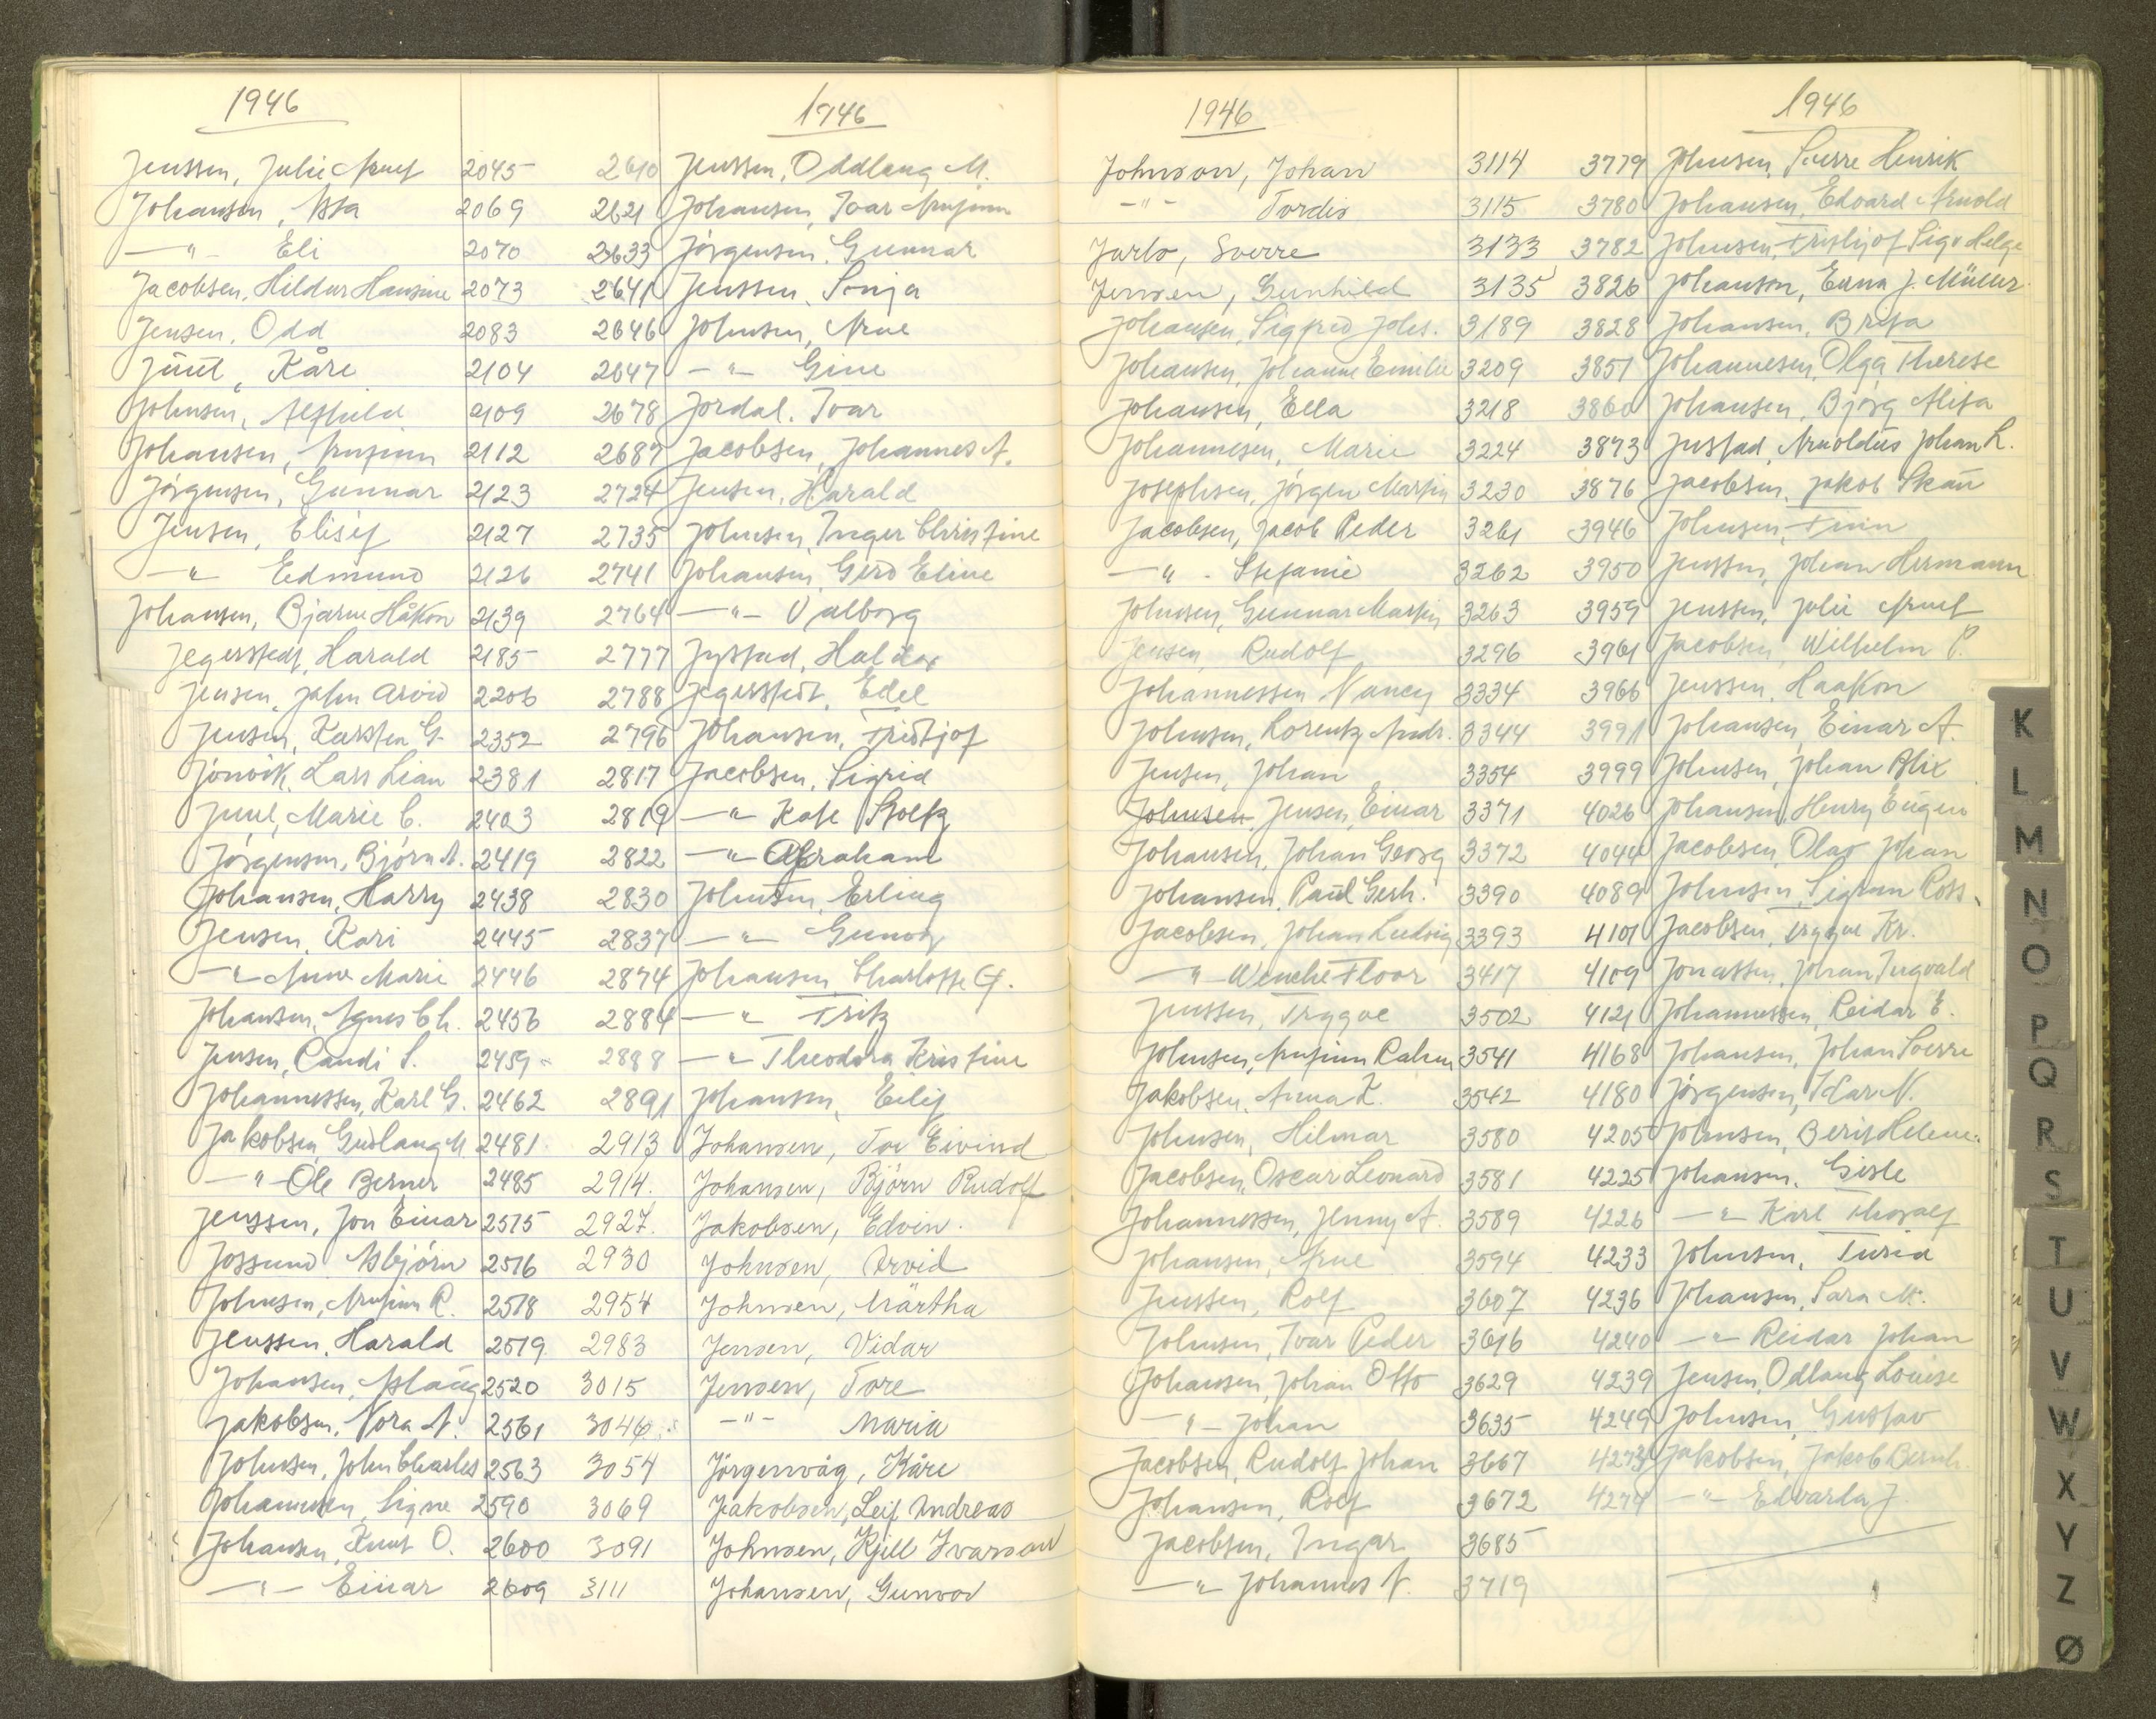 1946
Jenssen, Julie Arnet 2045
Johansen, Åsta 2069
—"— Eli 2070
Jacobsen, Hildur Hansine 2073
Jensen, Odd 2083
Juul, Kåre 2104
Johnsen, Alfhild 2109
Johansen, Arnfinn 2112
Jörgensen, Gunnar 2123
Jensen, Elisif 2127
—"— Edmund 2126
Johansen, Bjarne Håkon 2139
Jegerstedt, Harald 2185
Jensen, John Arvid 2206
Jensen, Karsten G. 2352
Jonvik, Lars Lian 2381
Juul, Marie C. 2403
Jörgensen, Björn A. 2419
Johansen, Harry 2438
Jensen, Kari 2445
—"— Anne Marie 2446
Johansen, Agnes Ch. 2456
Jensen, Randi S. 2459
Johannessen, Karl G. 2462
Jakobsen, Gudlaug M. 2481
—"— Ole Berner 2485
Jenssen, Jon Einar 2515
Jossund Asbjörn 2516
Johnsen, Arnfinn R. 2518
Jenssen, Harald 2519
Johansen, Aslaug 2520
Jakobsen, Nora A. 2561
Johnsen, John Charles 2563
Johannesen, Signe 2590
Johansen, Knut O. 2600
—"— Einar 2609
1946
2610 Jenssen, Oddlaug M.
2621 Johansen, Ivar Arnfinn
2633 Jörgensen, Gunnar
2641 Jenssen, Sonja
2646 Johnsen, Arne
2647 —"— Gine
2678 Jordal, Ivar
2687 Jacobsen, Johannes A.
2724 Jensen, Harald
2735 Johnsen, Inger Christine
2741 Johansen, Gerd Eline
2764 —"— Valborg
2777 Jystad, Haldor
2788 Jegerstedt, Edel
2796 Johansen, Fridtjof
2817 Jacobsen, Sigrid
2819 —"— Kate Stoltz
2822 —"— Abraham
2830 Johnsen, Erling
2837 —"— Gunvor
2874 Johansen, Charlotte G.
2884 —"— Fritz
2888 —"— Theodora Kristine
2891 Johansen, Eilif
2913 Johansen, Tor Eivind
2914. Johansen, Björn Rudolf
2927. Jakobsen, Edvin.
2930 Johnsen, Arvid
2954 Johnsen, Märtha
2983 Jensen, Vidar
3015 Jensen, Tore
3046 -"- Maria
3054 Jörgenvåg, Kåre
3069 Jakobsen, Leif Andreas
3091 Johnsen, Kjell Ivarson
3111 Johansen, Gunvor
1946
Johnson, Johan 3114
-"- Tordis 3115
Jarls, Sverre 3133
Jensen, Gunhild 3135
Johansen, Sigfred Johs. 3189
Johansen, Johanne Emilie 3209
Johansen, Ella 3218
Johannesen, Marie 3224
Josephsen, Jörgen Martin 3230
Jacobsen, Jacob Peder 3261
—"— Stefanie 3262
Johnsen, Gunnar Martin 3263
Jensen, Rudolf 3296
Johannessen Nancy 3334
Johnsen, Lorentz Andr. 3344
Jensen, Johan 3354
Johnsen, Jensen, Einar 3371
Johansen, Johan Georg 3372
Johansen, Paul Gerh. 3390
Jacobsen, Johan Ludvig 3393
—"— Wenche Floor 3417
Jenssen, Trygve 3502
Johnsen, Arnfinn Rahm 3541
Jakobsen, Anna K. 3542
Johnsen, Hilmar 3580
Jacobsen, Oscar Leonard 3581
Johannessen, Jenny A. 3589
Johansen, Arne 3594
Jenssen, Rolf 3607
Johnsen, Ivar Peder 3616
Johansen, Johan Otto 3629
—"— Johan 3635
Jacobsen, Rudolf Johan 3667
Johansen, Rolf 3672
Jacobsen, Ingar 3685
—"— Johannes N. 3719
1946
3779 Johnsen, Sverre Henrik
3780 Johansen, Edvard Arnold
3782 Johnsen, Fritjof Sigv Helge
3826 Johanson, Edna J. Müller
3828 Johansen, Brita
3851 Johannesen, Olga Therese
3860 Johansen, Björg Alisa
3873 Justad, Arnoldus Johan L.
3876 Jacobsen, Jakob Skau
3946 Johnsen, Finn
3950 Jenssen, Johan Hermann
3959 Jenssen, Julie Arnet
3961 Jacobsen, Wilhelm P.
3966 Jenssen, Haakon
3991 Johansen, Einar A.
3999 Johnsen, Johan Blix
4026 Johansen, Henry Eugen
4044 Jacobsen, Olav Johan
4089 Johnsen, Sigrun Ross.
4101 Jacobsen, Trygve Kr.
4109 Jonassen, Johan Ingvald
4121 Johannessen, Reidar E.
4168 Johansen, Johan Sverre
4180 Jörgensen, Idar N.
4205 Johnsen, Berit Helene
4225 Johansen, Gisle
4226 —"— Karl Thoralf
4233 Johnsen, Turid
4236 Johansen, Sara M.
4240 —"— Reidar Johan
4239 Jensen, Odlaug Louise
4249 Johnsen, Gustav
4273 Jakobsen, Jakob Bernh.
4274 —"— Edvarda J.
K
L
M
N
O
P
Q
R
S
T
U
V
W
X
Y
Z
Ø